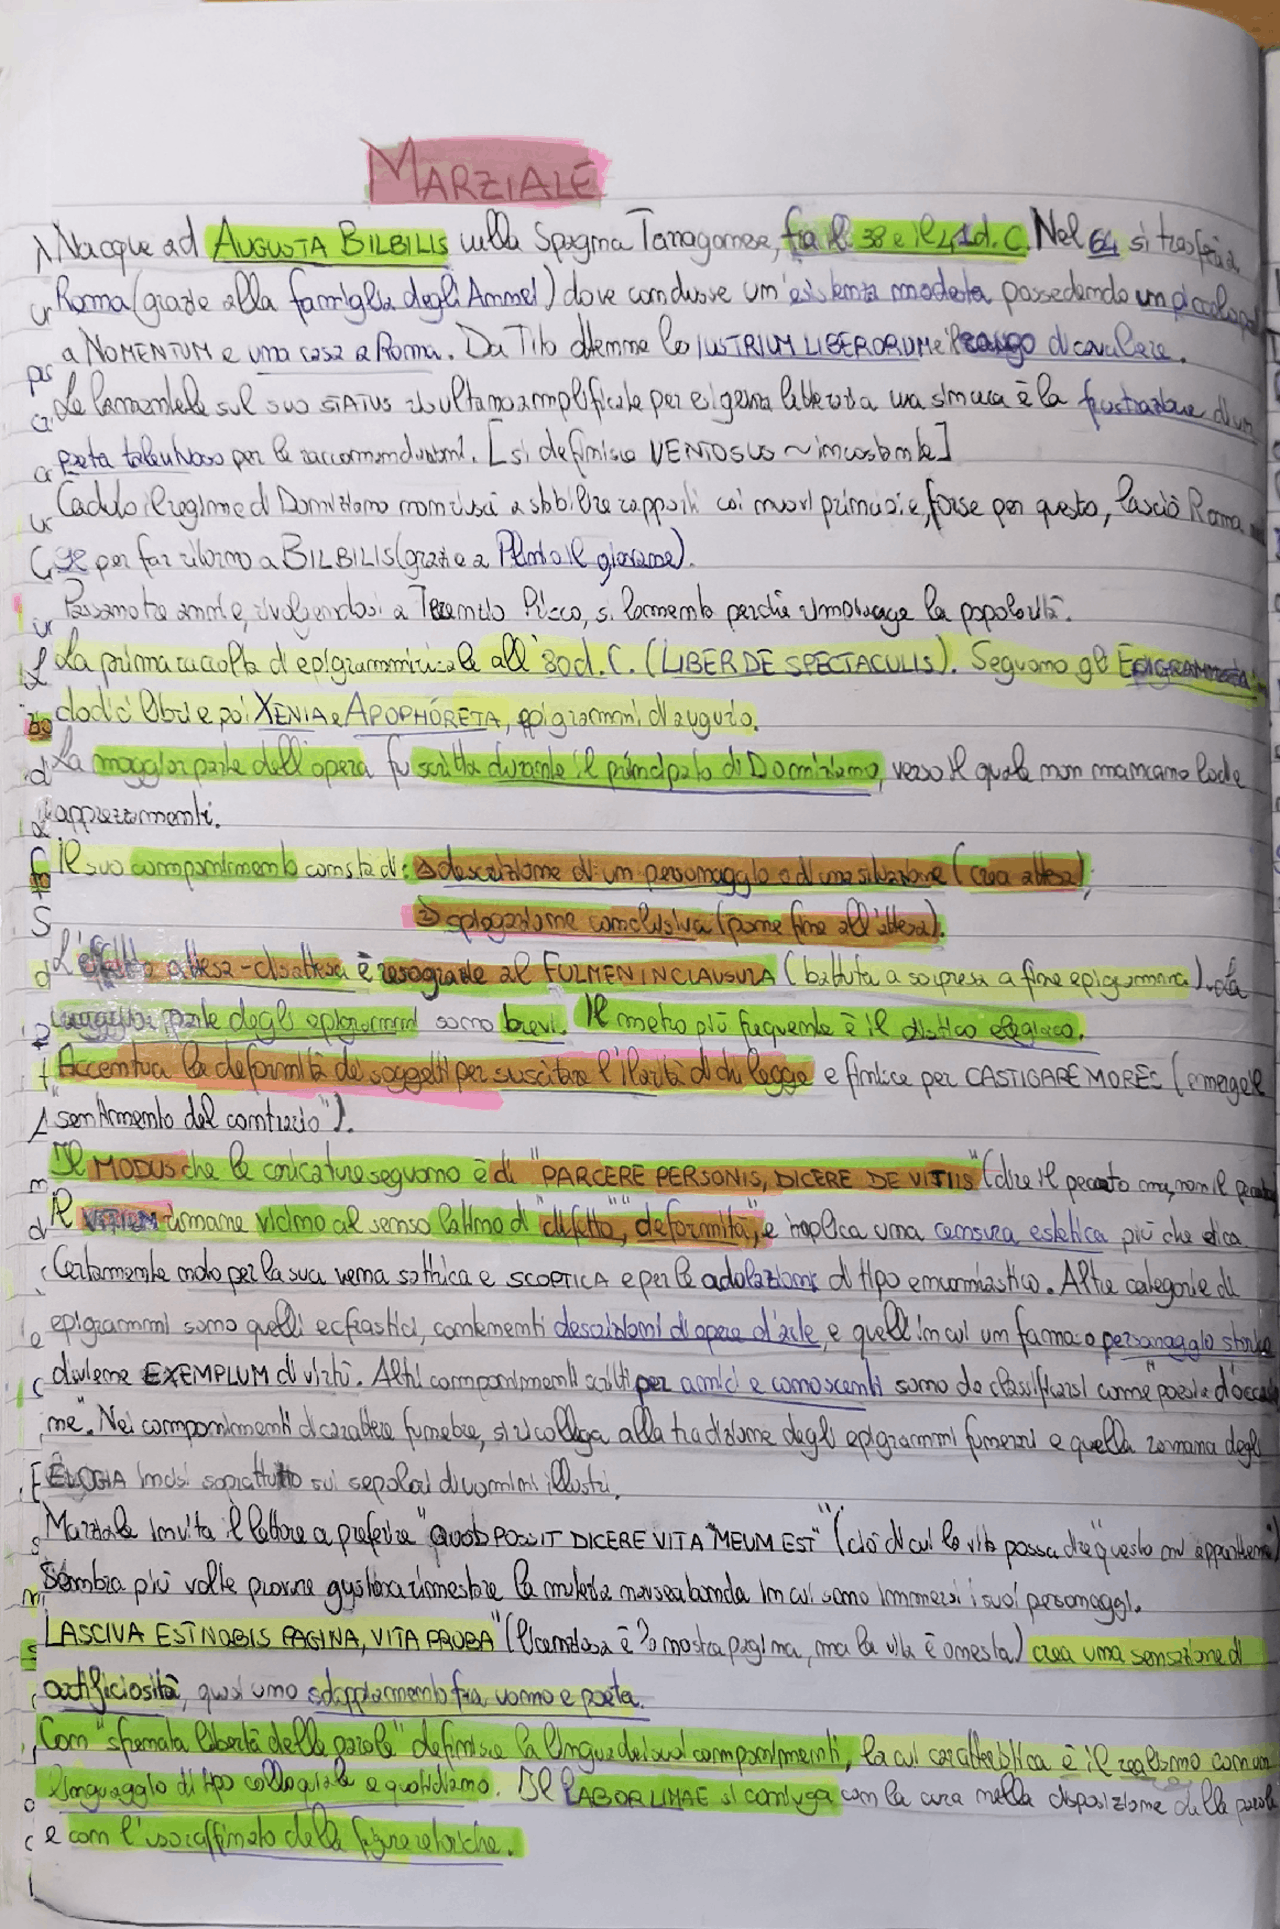 MARZIALE
Nacque ad AUGUSTA BILBILIS nella Spagna Tarragonese, fra il 38 e il 41 d.C. Nel 64 si trasferì a
Roma (grazie alla famiglia degli Annei) dove condusse un'esistenza modesta possedendo un piccolo
a NOMENTUM e una casa a Roma. Da Tito ottenne lo IUSTRIUM LIBERORUM e il rango di cavaliere.
Le lamentele sul suo STATUS risultano amplificate per esigenza letteraria ma sincera è la frustrazione di un
poeta talentuoso per le raccomandazioni. [si definisce VENTOSUS ~ incostante]
Caduto il regime di Domiziano non riuscì a stabilire rapporti coi nuovi principi e, forse per questo, lasciò Roma nel
98 per far ritorno a BILBILIS (grazie a Plinio il giovane).
Passano tre anni e, rivolgendosi a Prisco, si lamenta perché rimpiange la popolarità.
La prima raccolta di epigrammi risale all' 80 d.C. (LIBER DE SPECTACULIS). Seguono gli EPIGRAMMATA
dodici libri e poi XENIA e APOPHÓRETA, epigrammi d'augurio.
La maggior parte dell'opera fu scritta durante il principato di Domiziano, verso il quale non mancano lodi e
apprezzamenti.
Il suo componimento consta di: 1) descrizione di un personaggio o di una situazione (crea attesa);
2) spiegazione conclusiva (pone fine all'attesa).
L'effetto attesa-disattesa è reso grazie al FULMEN IN CLAUSULA (battuta a sorpresa a fine epigramma). La
maggior parte degli epigrammi sono brevi. Il metro più frequente è il distico elegiaco.
Accentua la deformità dei soggetti per suscitare l'ilarità di chi legge e finisce per CASTIGARE MORES (emerge il
"sentimento del contrario").
Il MODUS che le caricature seguono è di "PARCERE PERSONIS, DICERE DE VITIIS" (dire il peccato ma non il
Il VITIUM rimane vicino al senso latino di "difetto", "deformità", e implica una censura estetica più che etica.
Certamente noto per la sua vena satirica e SCOPTICA e per le adulazioni di tipo encomiastico. Altre categorie di
epigrammi sono quelli ecfrastici, contenenti descrizioni di opere d'arte, e quelli in cui un famoso personaggio storico
diviene EXEMPLUM di virtù. Altri componimenti scritti per amici e conoscenti sono da classificarsi come "poesia d'occasio
ne". Nei componimenti di carattere funebre, si ricollega alla tradizione degli epigrammi funerari e quella romana degli
ELOGIA incisi soprattutto sui sepolcri di uomini illustri.
Marziale invita il lettore a preferire "QUOD POSSIT DICERE VITA "MEUM EST"" (ciò di cui la vita possa dire "questo mi appartiene")
Sembra più volte provare gusto a rimestare la materia nauseabonda in cui sono immersi i suoi personaggi.
LASCIVA EST NOBIS PAGINA, VITA PROBA" (licenziosa è la nostra pagina, ma la vita è onesta) crea una sensazione di
artificiosità, quasi uno sdoppiamento fra uomo e poeta.
Con "sfrenata libertà delle parole" definisce la lingua dei suoi componimenti, la cui caratteristica è il realismo con un
linguaggio di tipo colloquiale e quotidiano. Il LABOR LIMAE si coniuga con la cura nella disposizione delle parole
e con l'uso raffinato delle figure retoriche.